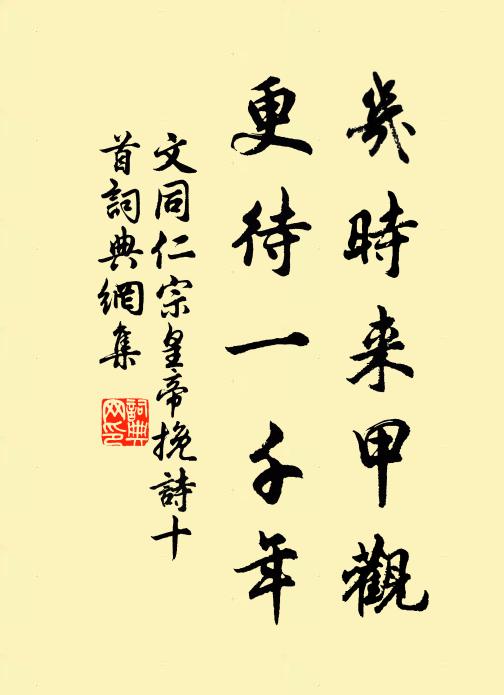 幾時来甲觀
更待一千年
文同仁宗皇帝挽詩十
首詞典網集
詞典
网印